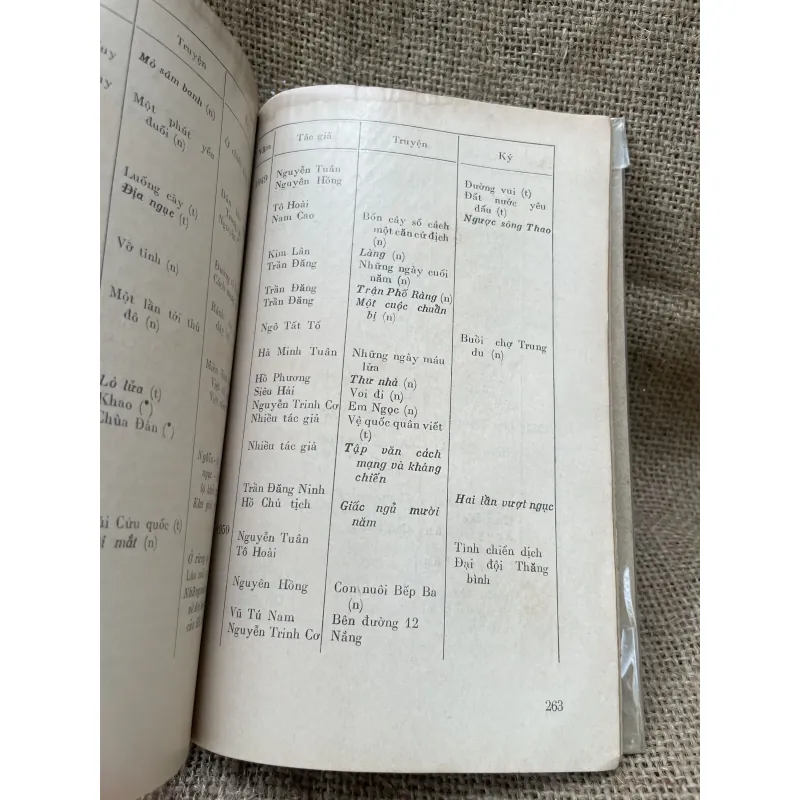 Truyện
Mỏ sâm banh (n)
Một phát yếu
đuối (n)
Luống cày (t)
Địa ngục (t)
Vỡ tỉnh (n)
Một lần tới thủ
đô (n)
Lò lửa (t)
Khao (*)
Chùa Đàn (*)
Cứu quốc (t)
mắt (n)
Tác giả Truyện Ký
1949 Nguyễn Tuân Đường vui (t)
Nguyên Hồng Đất nước yêu
dấu (t)
Tô Hoài Ngược sông Thao
Nam Cao Bốn cây số cách
một căn cứ địch
(n)
Kim Lân Làng (n)
Trần Đăng Những ngày cuối
năm (n)
Trần Đăng Trận Phố Ràng (n)
Trần Đăng Một cuộc chuẩn
bị (n)
Ngô Tất Tố Buổi chợ Trung
du (n)
Hà Minh Tuân Những ngày máu
lửa
Hồ Phương Thư nhà (n)
Siêu Hải Voi đi (n)
Nguyễn Trinh Cơ Em Ngọc (n)
Nhiều tác giả Vệ quốc quân viết
(t)
Nhiều tác giả Tập văn cách
mạng và kháng
chiến
Trần Đăng Ninh Hai lần vượt ngục
Hồ Chủ tịch Giấc ngủ mười
năm
1950 Nguyễn Tuân Tình chiến dịch
Tô Hoài Đại đội Thắng
bình
Nguyên Hồng Con nuôi Bếp Ba
(n)
Vũ Tú Nam Bên đường 12
Nguyễn Trinh Cơ Nắng
263